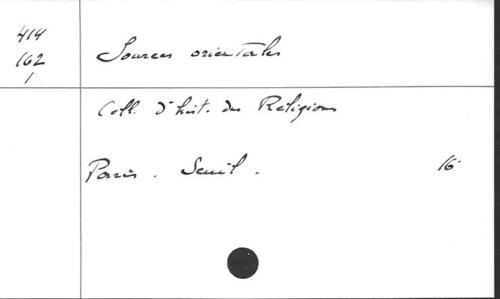 414
162
1
Sources orientales
Coll. d'hist. des Religions
Paris. Seuil. 16